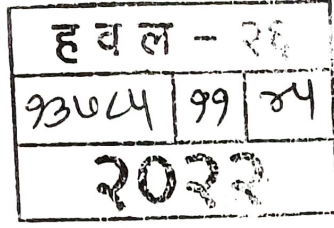 हवल - २६
१३७८५ ११ ४५
२०२२